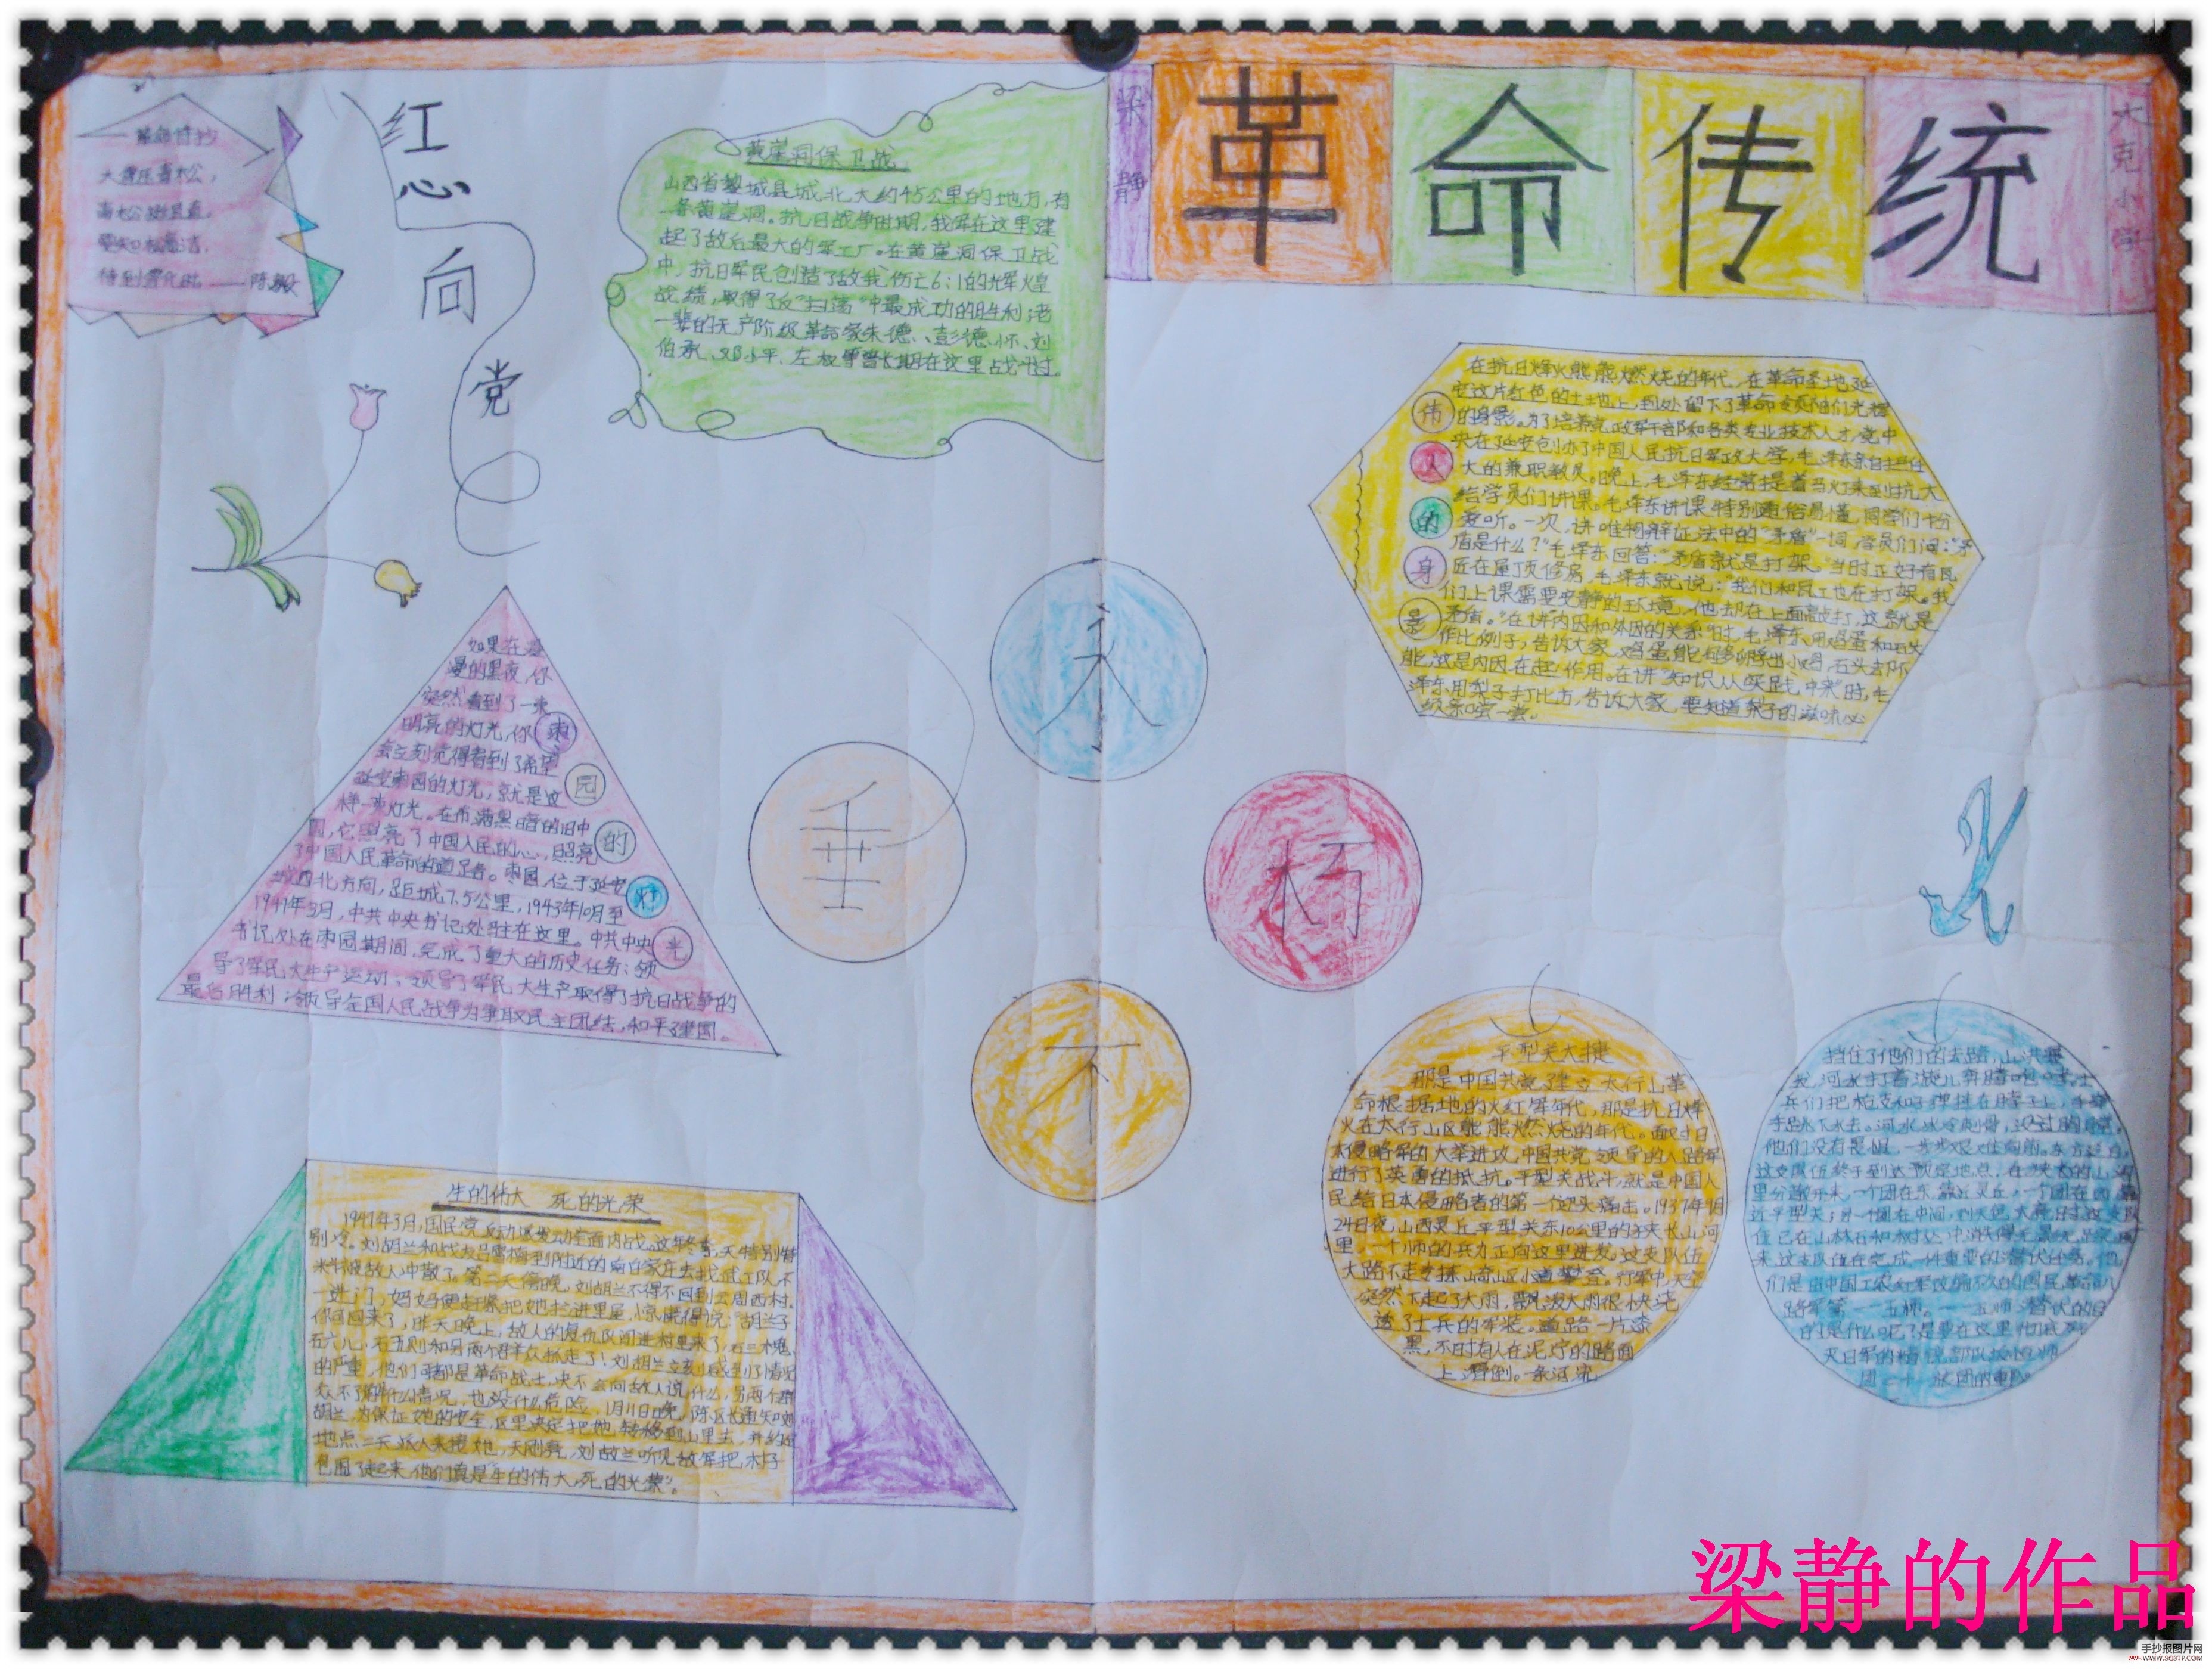 革命传统
梁静
大克小学
红心向党
大雪压青松，
青松挺且直。
要知松高洁，
待到雪化时——陈毅
黄崖洞保卫战
山西省黎城县城北大约45公里的地方，有
一条黄崖洞。抗日战争时期，我军在这里建
起了敌后最大的军工厂。在黄崖洞保卫战
中，抗日军民创造了敌我伤亡6:1的辉煌
战绩，取得了反“扫荡”中最成功的胜利；老
一辈的无产阶级革命家朱德、彭德怀、刘
伯承、邓小平、左权等曾长期在这里战斗过。
伟人的身影
在抗日烽火熊熊燃烧的年代，在革命圣地延
安这片红色的土地上，到处留下了革命
的身影。为了培养党政军干部和各类专业技术人才，党中
央在延安创办了中国人民抗日军政大学，毛泽东亲自担任
大的兼职教员。晚上，毛泽东经常提着马灯来到抗大
给学员们讲课。毛泽东讲课特别通俗易懂，同学们十分
爱听。一次，讲唯物辩证法中的“矛盾”一词，学员们问：“矛
盾是什么？”毛泽东回答：“矛盾就是打架。”当时正好有瓦
匠在屋顶修房，毛泽东就说：“我们和瓦工也在打架。我
们上课需要安静的环境，他却在上面敲打，这就是
矛盾。”在讲“内因和外因的关系”时，毛泽东用鸡蛋和石头
作比例子，告诉大家，鸡蛋能够孵出小鸡，石头去不
能，这是内因在起作用。在讲“知识从实践中来”时，毛
泽东用梨子打比方，告诉大家，要知道梨子的滋味必
须亲口尝一尝。
永
垂
不
朽
枣园的灯光
如果在漫
漫的黑夜，你
突然看到了一束
明亮的灯光，你
会立刻觉得看到了希望
延安枣园的灯光，就是这
样一束灯光。在布满黑暗的旧中
国，它照亮了中国人民的心，照亮
了中国人民革命的道路。枣园，位于延安
城西北方向，距城7.5公里，1943年10月至
1947年3月，中共中央书记处驻在这里。中共中央
书记处在枣园期间，完成了重大的历史任务：领
导了军民大生产运动；领导了军民大生产取得了抗日战争的
最后胜利；领导全国人民战争为争取民主团结，和平建国。
生的伟大 死的光荣
1947年3月，国民党反动派发动全面内战。这年冬季，天特别特
别冷。刘胡兰和战友吕雪梅到附近的南白家庄去找武工队，不
料被敌人冲散了。第二天傍晚，刘胡兰不得不回到云周西村。
一进门，妈妈便赶紧把她拦进里屋，惊慌得说：“胡兰子
你可回来了，昨天晚上，敌人的复仇队闯进村里来了，石三槐、
石六儿、石五则和另两个群众抓走了！刘胡兰立刻感到了情况
的严重，他们可都是革命战士，决不会向敌人说什么，另两个群
众不了解什么情况，也没什么危险。1月11日晚，陈区长通知刘
胡兰，为保证她的安全，区里决定把她转移到山里去，并约定
地点二天派人来接她，天刚亮，刘故兰听见敌军把村子
包围了起来，他们真是“生的伟大，死的光荣”。
平型关大捷
那是中国共党建立太行山革
命根据地的火红年代，那是抗日烽
火在太行山区熊熊燃烧的年代。面对日
本侵略军的大举进攻，中国共党领导的八路军
进行了英勇的抵抗。平型关战斗，就是中国人
民给日本侵略者的第一个迎头痛击。1937年9月
24日夜，山西灵丘平型关东10公里的狭长山河
里，一个师的兵力正向这里进发。这支队伍
大路不走支拣崎山区小道攀登。行军中，天空
突然下起了大雨，瓢泼大雨很快浇
透了士兵的军装。道路一片漆
黑，不时有人在泥泞的路面
上滑倒。一条河流
挡住了他们的去路，山洪暴
发，河水打着漩儿奔腾咆哮。士
兵们把枪支和子弹挂在脖子上，手牵
手跳下水去。河水冰冷刺骨，没过胸膛。
他们没有畏惧，一步步艰难向前。东方泛白，
这支队伍终于到达预定地点，在狭长的山沟
里分散开来，一个团在东，靠近灵丘，一个团在西，靠
近平型关；另一个团在中间，到天色大亮时，这支队
伍已在山林石和村处中消失得无影无踪
来，这支队伍在完成一件重要的潜伏任务。他
们是由中国工农红军改编不久的国民革命八
路军第一一五师。一一五师潜伏的目
的是什么呢？是要在这里彻底
灭日军的精锐部队坂垣师
团二十一旅团的重队。
梁静的作品
手抄报图片网
WWW.SCBTP.COM